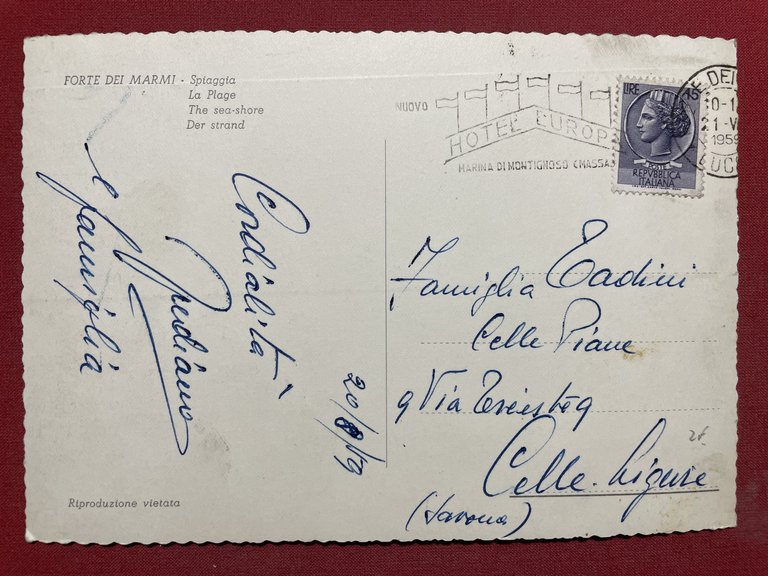 FORTE DEI MARMI - Spiaggia
La Plage
The sea-shore
Der strand
NUOVO
HOTEL EUROP
MARINA DI MONTIGNOSO (MASSA
LIRE 15
POSTE
REPVBBLICA
ITALIANA
E DEI
1959
LUCC
Cordialità
e famiglia
20/8/59
Famiglia Tadini
Celle Piane
Via
Celle-Ligure
(Savona)
Riproduzione vietata